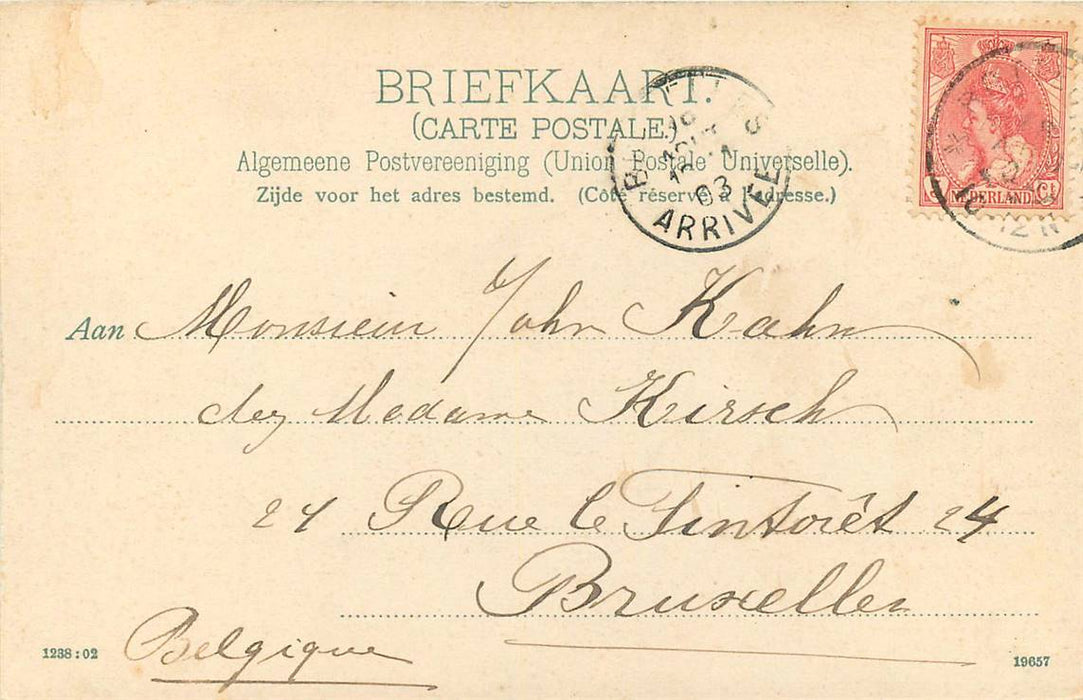 BRIEFKAART.
(CARTE POSTALE.)
Algemeene Postvereeniging (Union Postale Universelle).
Zijde voor het adres bestemd. (Côté réservé à l'adresse.)
BRUXELLES
03
ARRIVÉE
NEDERLAND
Aan Monsieur John Kahn
chez Madame Kirsch
24 Rue le Tintorêt 24
Bruxelles
Belgique
1238:02
19657